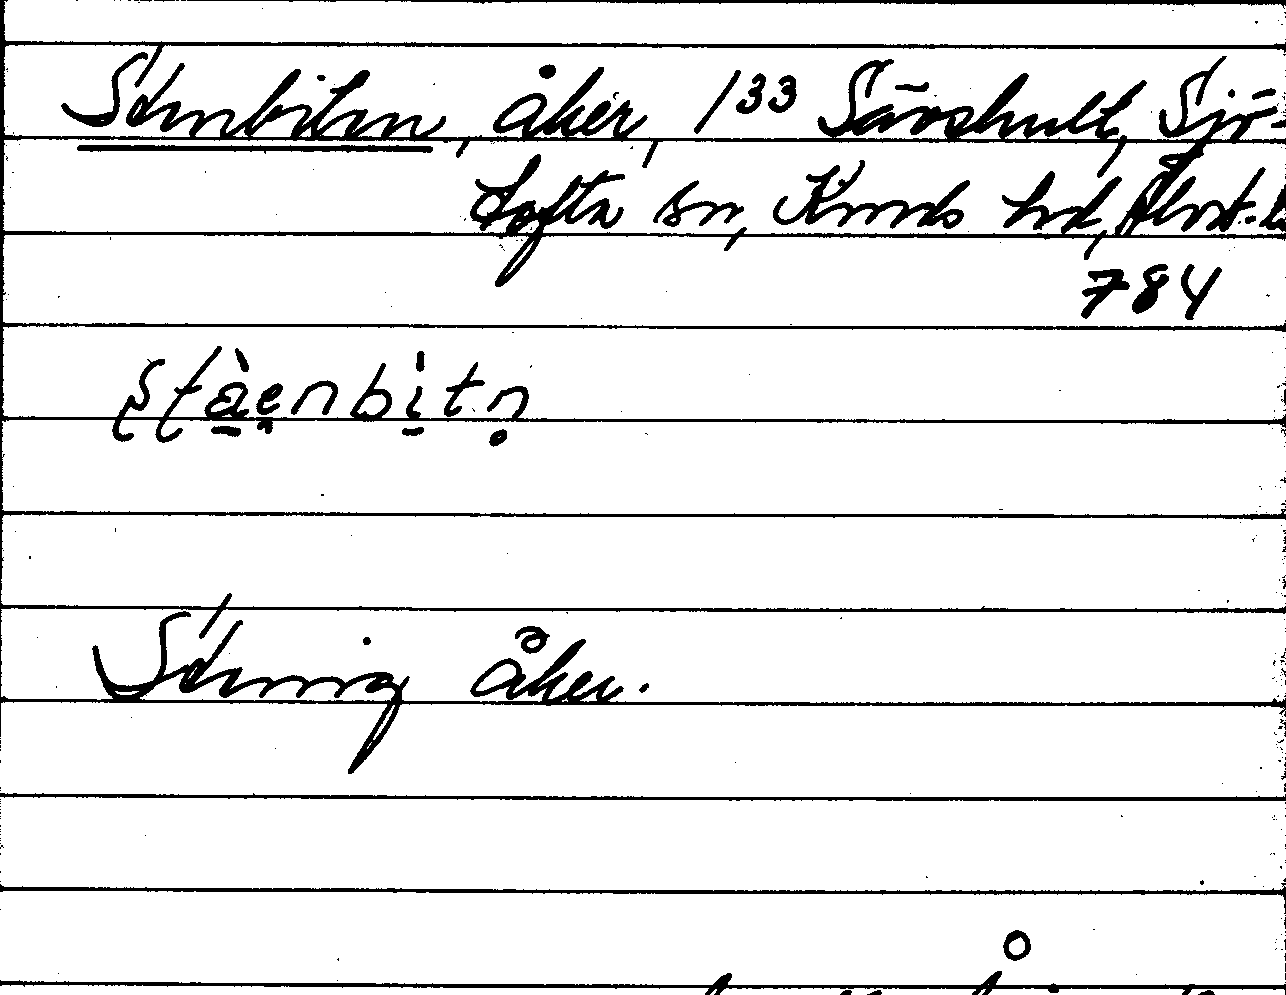 Stenbiten, åker, 133 Sävshult, Sjö-
tofta sn, Kinds hd, Älvsb. l
784
stàenbìtn̥
Stenig åker.